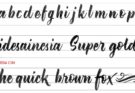 abcdefghijklmnop
idesainesia Super gold
The quick brown fox